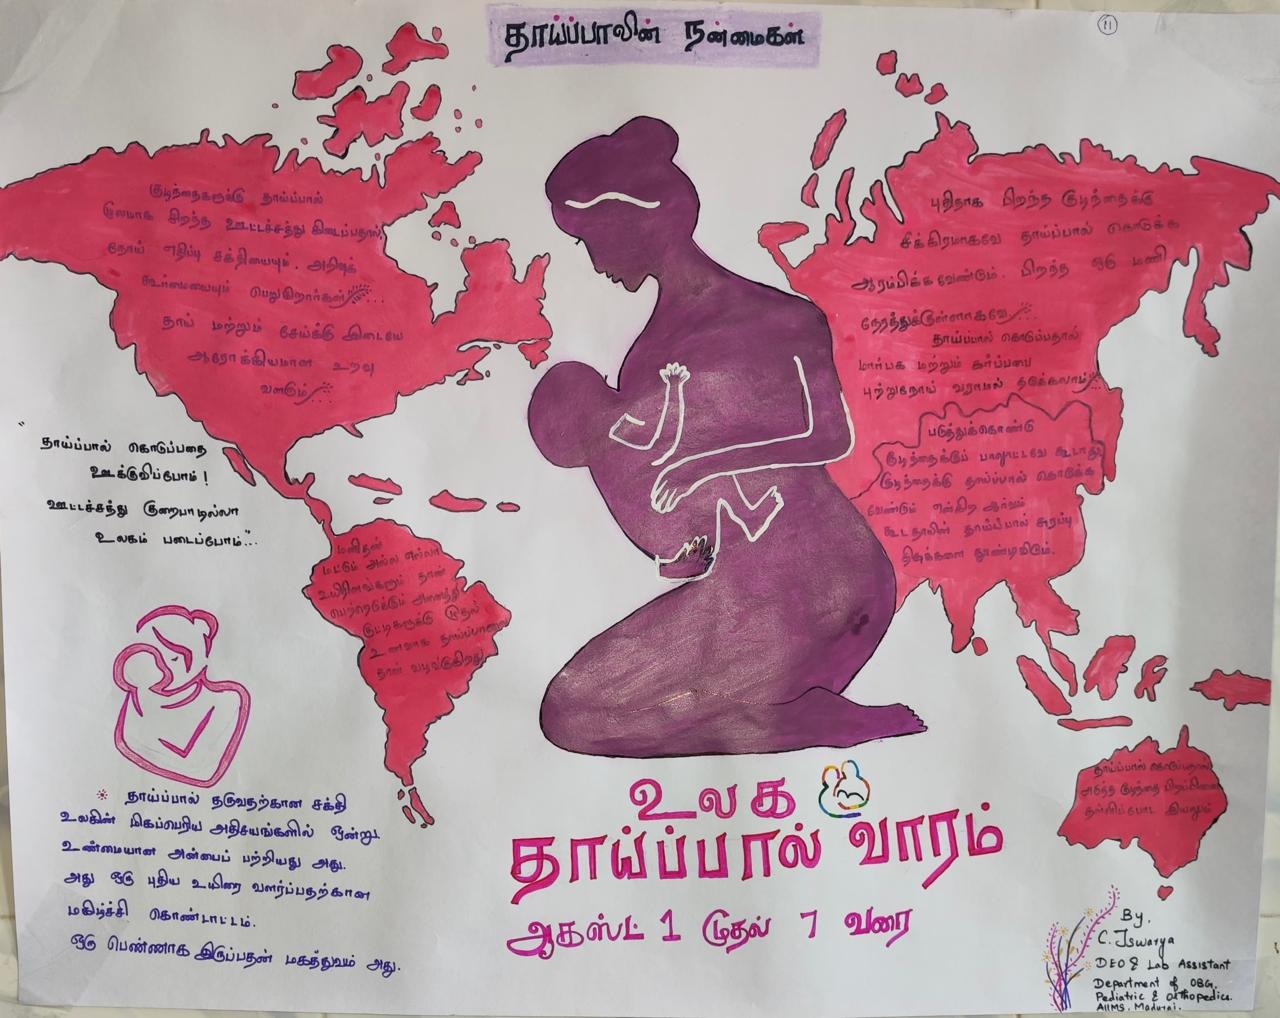 தாய்ப்பாலின் நன்மைகள்
11
குழந்தைகளுக்கு தாய்ப்பால்
மூலமாக சிறந்த ஊட்டச்சத்து கிடைப்பதால்
நோய் எதிப்பு சக்தியையும், அறிவுக்
கூர்மையையும் பெறுகிறார்கள்...
தாய் மற்றும் சேய்க்கு இடையே
ஆரோக்கியமான உறவு
வளரும்...
புதிதாக பிறந்த குழந்தைக்கு
சீக்கிரமாகவே தாய்ப்பால் கொடுக்க
ஆரம்பிக்க வேண்டும். பிறந்த ஒரு மணி
நேரத்துக்குள்ளாகவே...
தாய்ப்பால் கொடுப்பதால்
மார்பக மற்றும் கர்ப்பபை
புற்றுநோய் வராமல் தடுக்கலாம்...
படுத்துக்கொண்டு
குழந்தைக்குப் பாலூட்டவே கூடாது
குழந்தைக்கு தாய்ப்பால் கொடுக்க
வேண்டும் என்கிற ஆர்வம்
கூட தாயின் தாய்ப்பால் சுரப்பு
திசுக்களை தூண்டிவிடும்.
"தாய்ப்பால் கொடுப்பதை
ஊக்குவிப்போம்!
ஊட்டச்சத்து குறைபாடில்லா
உலகம் படைப்போம்"...
மனிதன்
மட்டும் அல்ல எல்லா
உயிரினங்களும் தான்
பெற்றெடுக்கும் அனைத்து
குட்டிகளுக்கு முதல்
உணவாக தாய்ப்பாலை
தான் வழங்குகிறது.
தாய்ப்பால் கொடுப்பதால்
அடுத்த குழந்தை பிறப்பினை
தள்ளிப்போட இயலும்
* தாய்ப்பால் தருவதற்கான சக்தி
உலகின் மிகப்பெரிய அதிசயங்களில் ஒன்று.
உண்மையான அன்பைப் பற்றியது அது.
அது ஒரு புதிய உயிரை வளர்ப்பதற்கான
மகிழ்ச்சி கொண்டாட்டம்.
ஒரு பெண்ணாக இருப்பதன் மகத்துவம் அது.
உலக
தாய்ப்பால் வாரம்
ஆகஸ்ட் 1 முதல் 7 வரை
By,
C. Iswarya
DEO & Lab Assistant
Department of OBG,
Pediatric & Orthopedics.
AIIMS, Madurai.